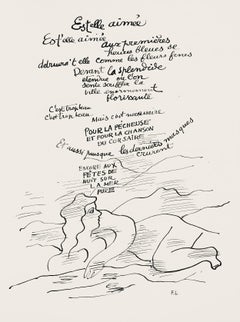 Est elle aimée
Est'elle aimée aux premières
heures bleues se
detruira t'elle comme les fleurs feues
Devant la splendide
étendue où l'on
sente souffler la
ville énormément
florissante
C'est trop beau
c'est trop beau
Mais c'est nécessaire
POUR LA PÉCHEUSE
ET POUR LA CHANSON
DU CORSAIRE
Et aussi puisque les dernières masques
crurent
ENCORE AUX
FÊTES DE
NUIT SUR
LA MER
PURE
F.L